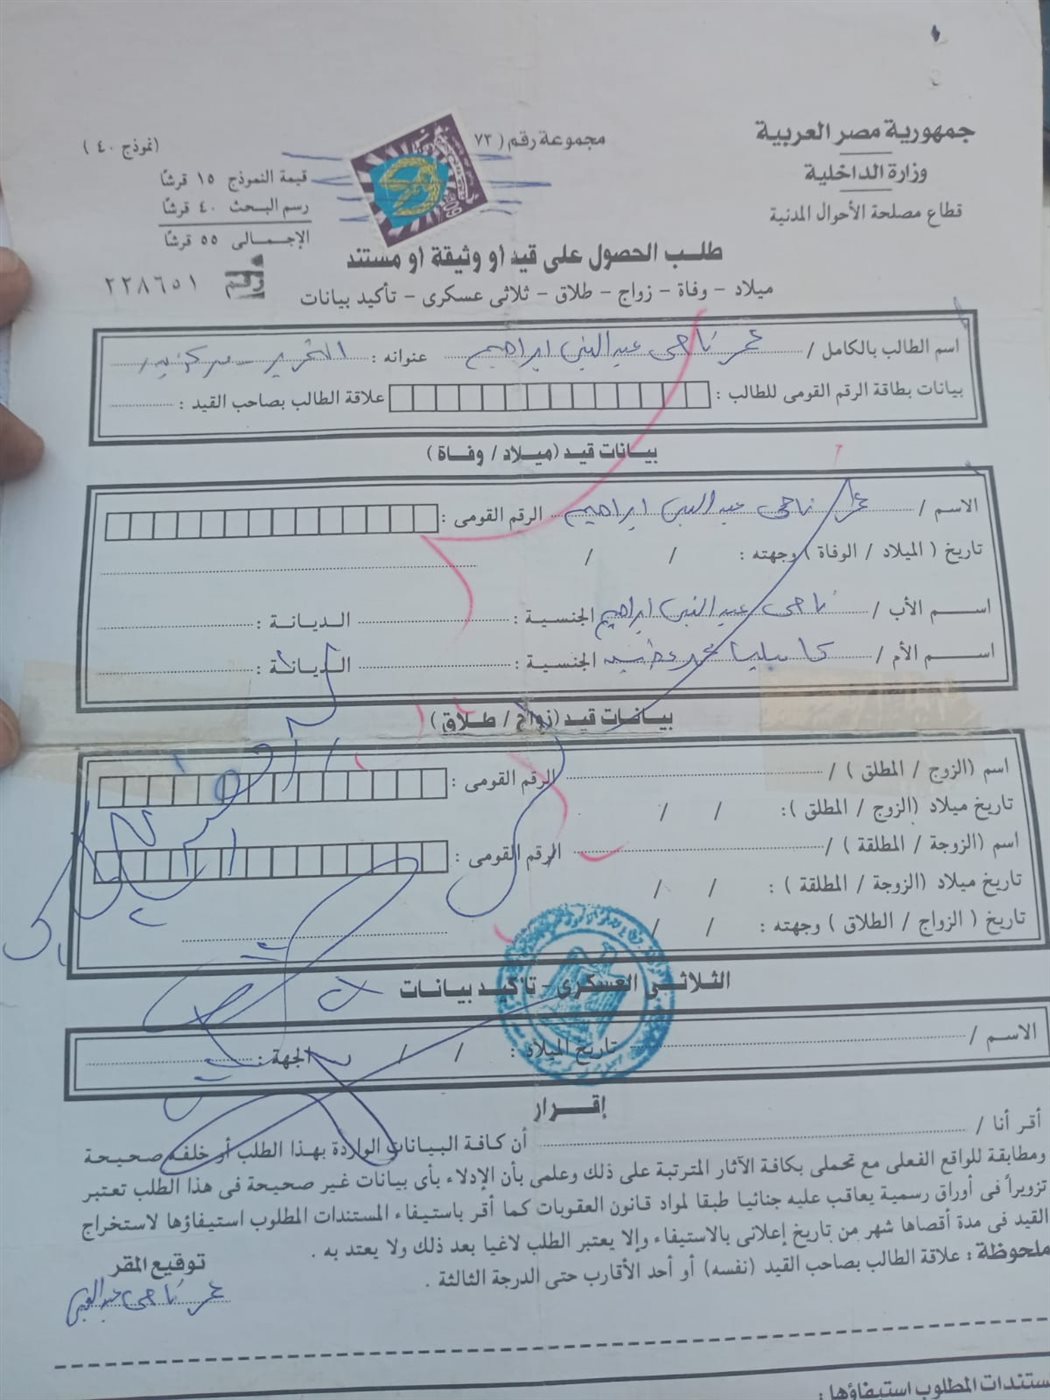 جمهورية مصر العربية
وزارة الداخلية
قطاع مصلحة الأحوال المدنية
مجموعة رقم ( ٧٣
(نموذج ٤٠ )
قيمة النموذج ١٥ قرشًا
رسم البحث ٤٠ قرشًا
الإجمالى ٥٥ قرشًا
رقم ٢٢٨٦٥١
طلب الحصول على قيد أو وثيقة أو مستند
ميلاد - وفاة - زواج - طلاق - ثلاثى عسكرى - تأكيد بيانات
اسم الطالب بالكامل / عمر ناجى عبد النبى ابراهيم عنوانه : التحرير
بيانات بطاقة الرقم القومى للطالب : علاقة الطالب بصاحب القيد :
بيانات قيد (ميلاد / وفاة )
الاسم / عمر ناجى عبد النبى ابراهيم الرقم القومى :
تاريخ ( الميلاد / الوفاة ) وجهته : / /
اسم الأب / ناجى عبد النبى ابراهيم الجنسية : الديانة :
اسم الأم / كاميليا محمد الجنسية : الديانة :
بيانات قيد (زواج / طلاق )
اسم (الزوج / المطلق ) / الرقم القومى :
تاريخ ميلاد (الزوج / المطلق ): / /
اسم (الزوجة / المطلقة ) / الرقم القومى :
تاريخ ميلاد (الزوجة / المطلقة ) : / /
تاريخ ( الزواج / الطلاق ) وجهته : / /
الثلاثى العسكرى - تأكيد بيانات
الاسم / تاريخ الميلاد : / / الجهة :
إقرار
أقر أنا / أن كافة البيانات الواردة بهذا الطلب أو خلفه صحيحة
ومطابقة للواقع الفعلى مع تحملى بكافة الآثار المترتبة على ذلك وعلمى بأن الإدلاء بأى بيانات غير صحيحة فى هذا الطلب تعتبر
تزويراً فى أوراق رسمية يعاقب عليه جنائيا طبقا لمواد قانون العقوبات كما أقر باستيفاء المستندات المطلوب استيفاؤها لاستخراج
القيد فى مدة أقصاها شهر من تاريخ إعلانى بالاستيفاء وإلا يعتبر الطلب لاغيا بعد ذلك ولا يعتد به .
ملحوظة : علاقة الطالب بصاحب القيد (نفسه) أو أحد الأقارب حتى الدرجة الثالثة .
توقيع المقر
عمر ناجى عبد النبى
ستندات المطلوب استيفاؤها :